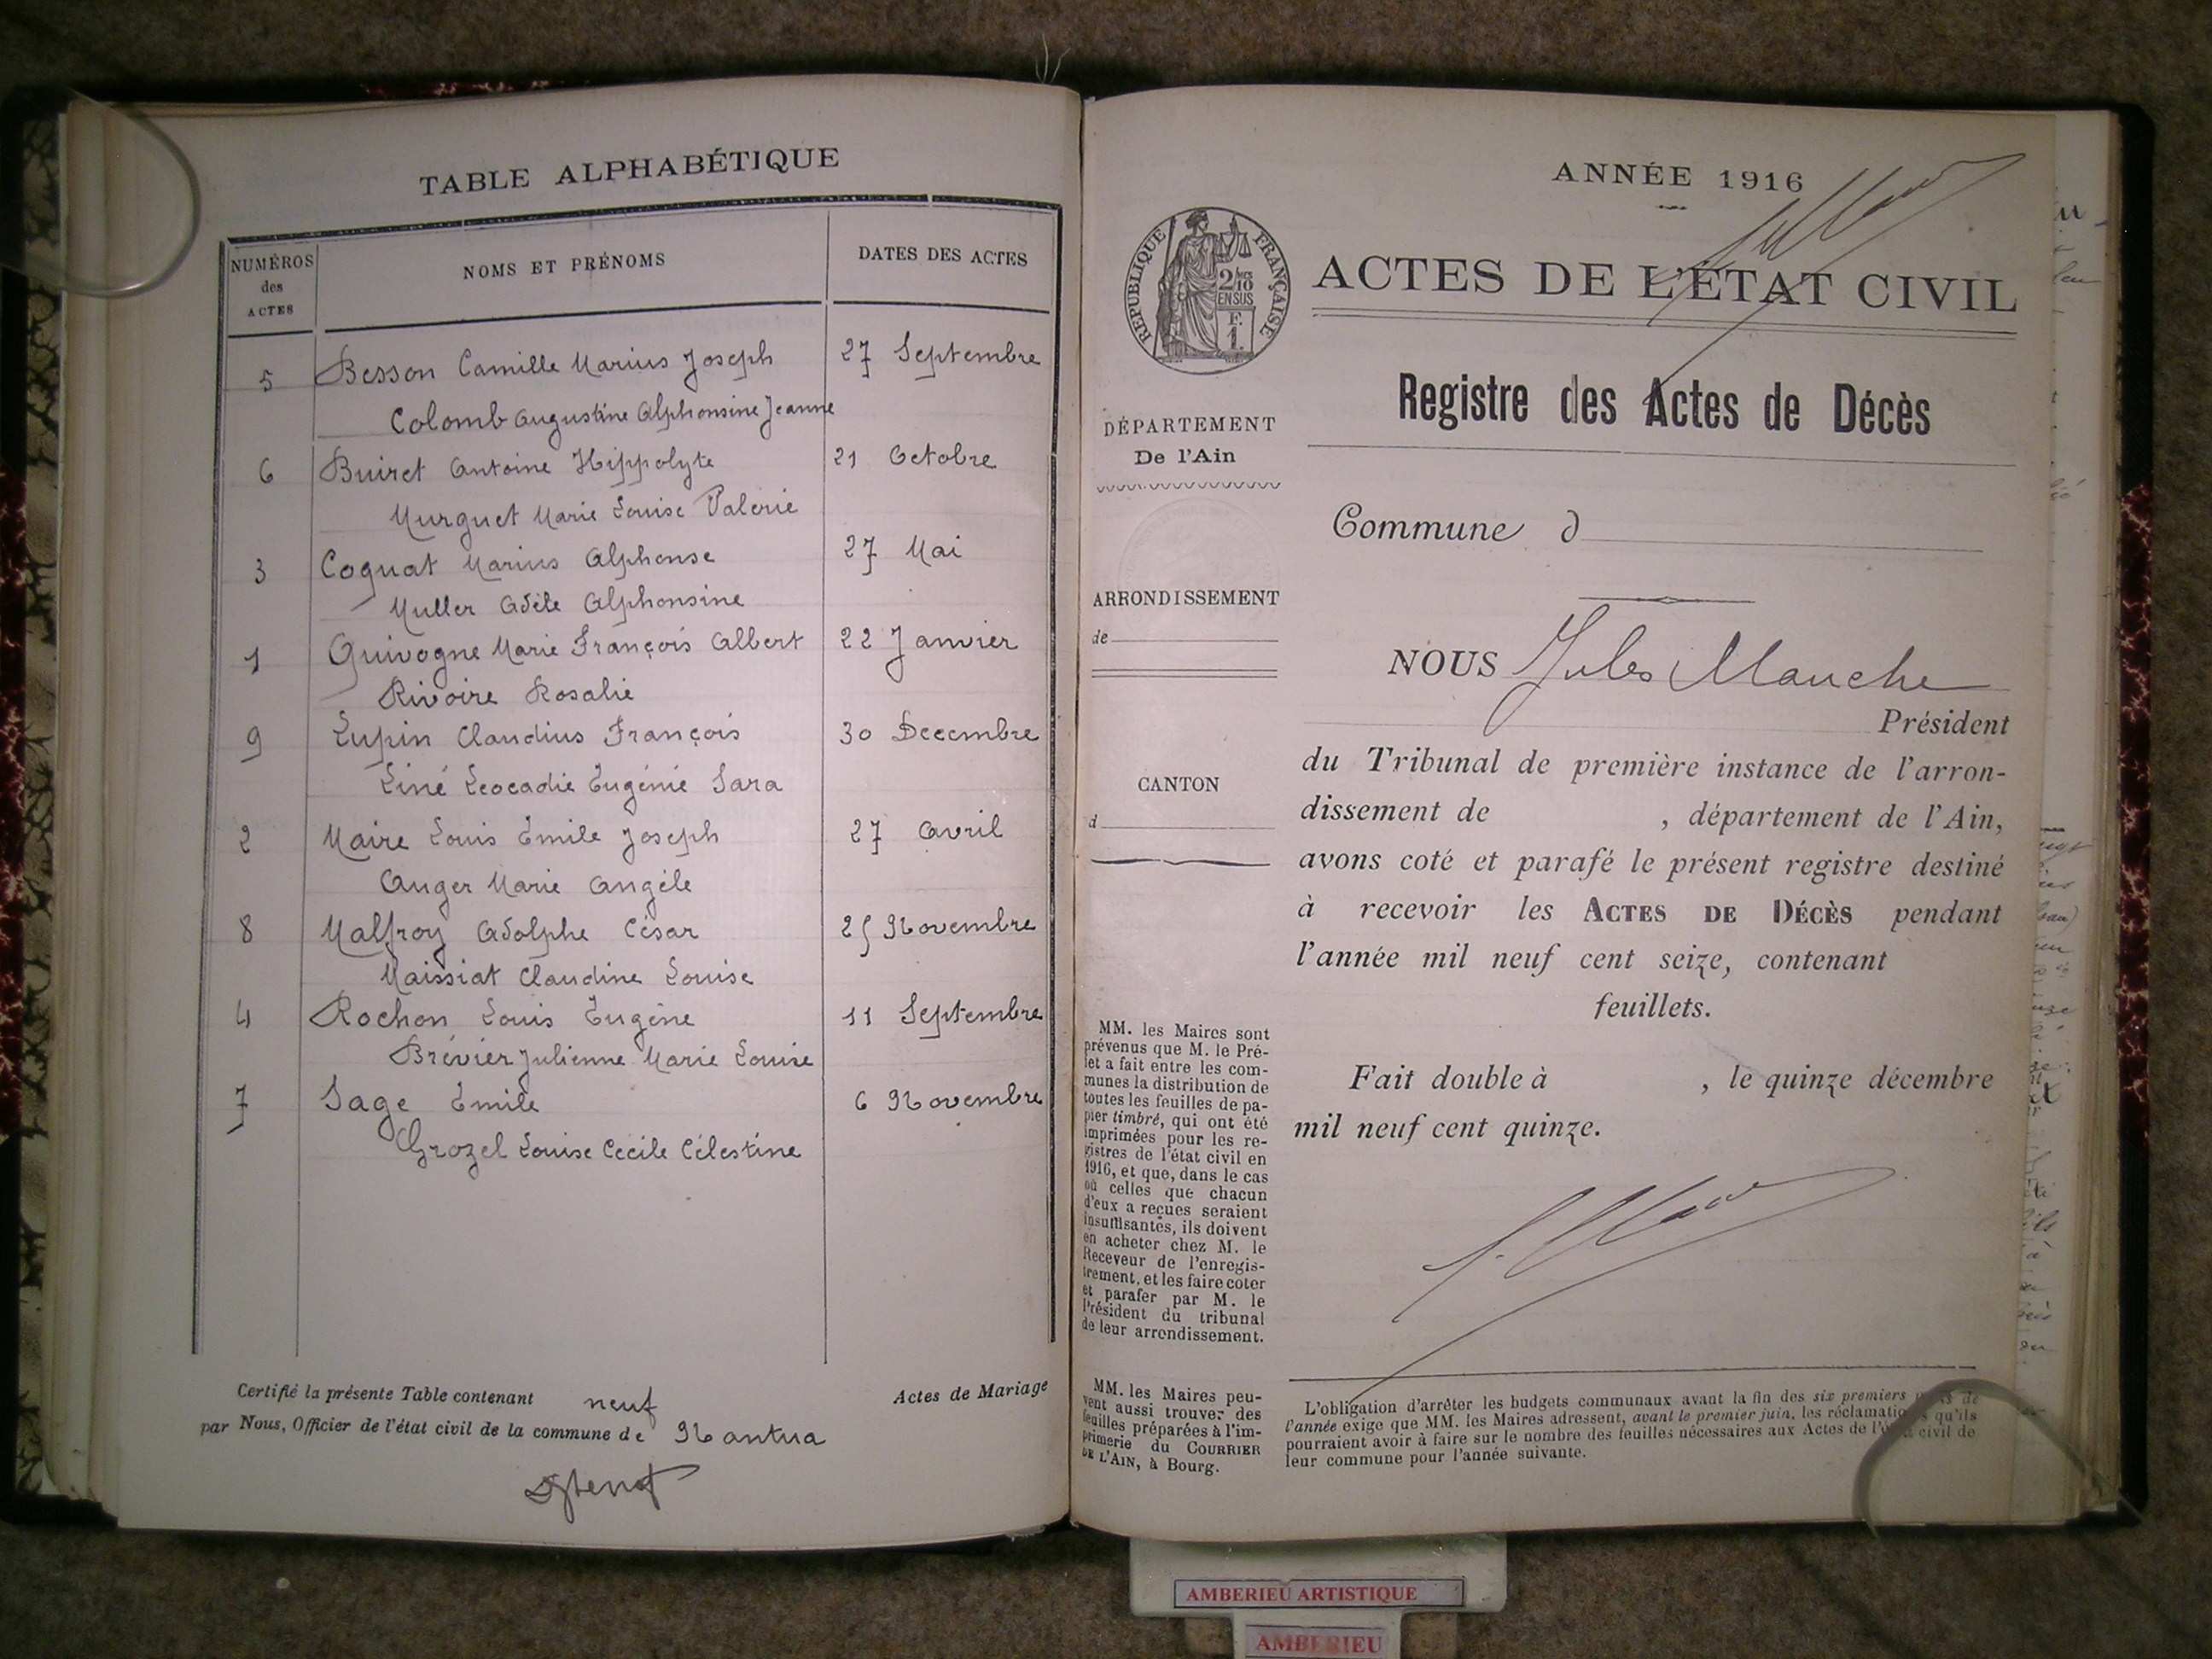 TABLE ALPHABÉTIQUE
NUMÉROS des ACTES
NOMS ET PRÉNOMS
DATES DES ACTES
5 Besson Camille Marius Joseph 27 Septembre
Colomb Augustine Alphonsine Jeanne
6 Buiret Antoine Hippolyte 21 Octobre
Murguet Marie Louise Valérie
3 Coquat Marius Alphonse 27 Mai
Muller Adèle Alphonsine
1 Guivogne Marie François Albert 22 Janvier
Rivoire Rosalie
9 Lupin Claudius François 30 Decembre
Liné Leocadie Eugénie Sara
2 Maire Louis Emile Joseph 27 Avril
Auger Marie Angèle
8 Malfroy Adolphe César 25 Novembre
Maissiat Claudine Louise
4 Rochon Louis Eugène 11 Septembre
Brévier Julienne Marie Louise
7 Sage Emile 6 Novembre
Grozel Louise Cécile Célestine
Certifié la présente Table contenant neuf Actes de Mariage
par Nous, Officier de l'état civil de la commune de Nantua
ANNÉE 1916
RÉPUBLIQUE FRANÇAISE
2/10
EN SUS
F.
1.
ACTES DE L'ÉTAT CIVIL
Registre des Actes de Décès
DÉPARTEMENT
De l'Ain
Commune d
ARRONDISSEMENT
de
CANTON
d
NOUS Jules Mauche
Président
du Tribunal de première instance de l'arron-
dissement de , département de l'Ain,
avons coté et parafé le présent registre destiné
à recevoir les ACTES DE DÉCÈS pendant
l'année mil neuf cent seize, contenant
feuillets.
Fait double à , le quinze décembre
mil neuf cent quinze.
MM. les Maires sont
prévenus que M. le Pré-
fet a fait entre les com-
munes la distribution de
toutes les feuilles de pa-
pier timbré, qui ont été
imprimées pour les re-
gistres de l'état civil en
1916, et que, dans le cas
où celles que chacun
d'eux a reçues seraient
insuffisantes, ils doivent
en acheter chez M. le
Receveur de l'enregis-
trement, et les faire coter
et parafer par M. le
Président du tribunal
de leur arrondissement.
MM. les Maires peu-
vent aussi trouver des
feuilles préparées à l'im-
primerie du COURRIER
DE L'AIN, à Bourg.
L'obligation d'arrêter les budgets communaux avant la fin des six premiers mois de
l'année exige que MM. les Maires adressent, avant le premier juin, les réclamations qu'ils
pourraient avoir à faire sur le nombre des feuilles nécessaires aux Actes de l'état civil de
leur commune pour l'année suivante.
AMBERIEU ARTISTIQUE
AMBERIEU